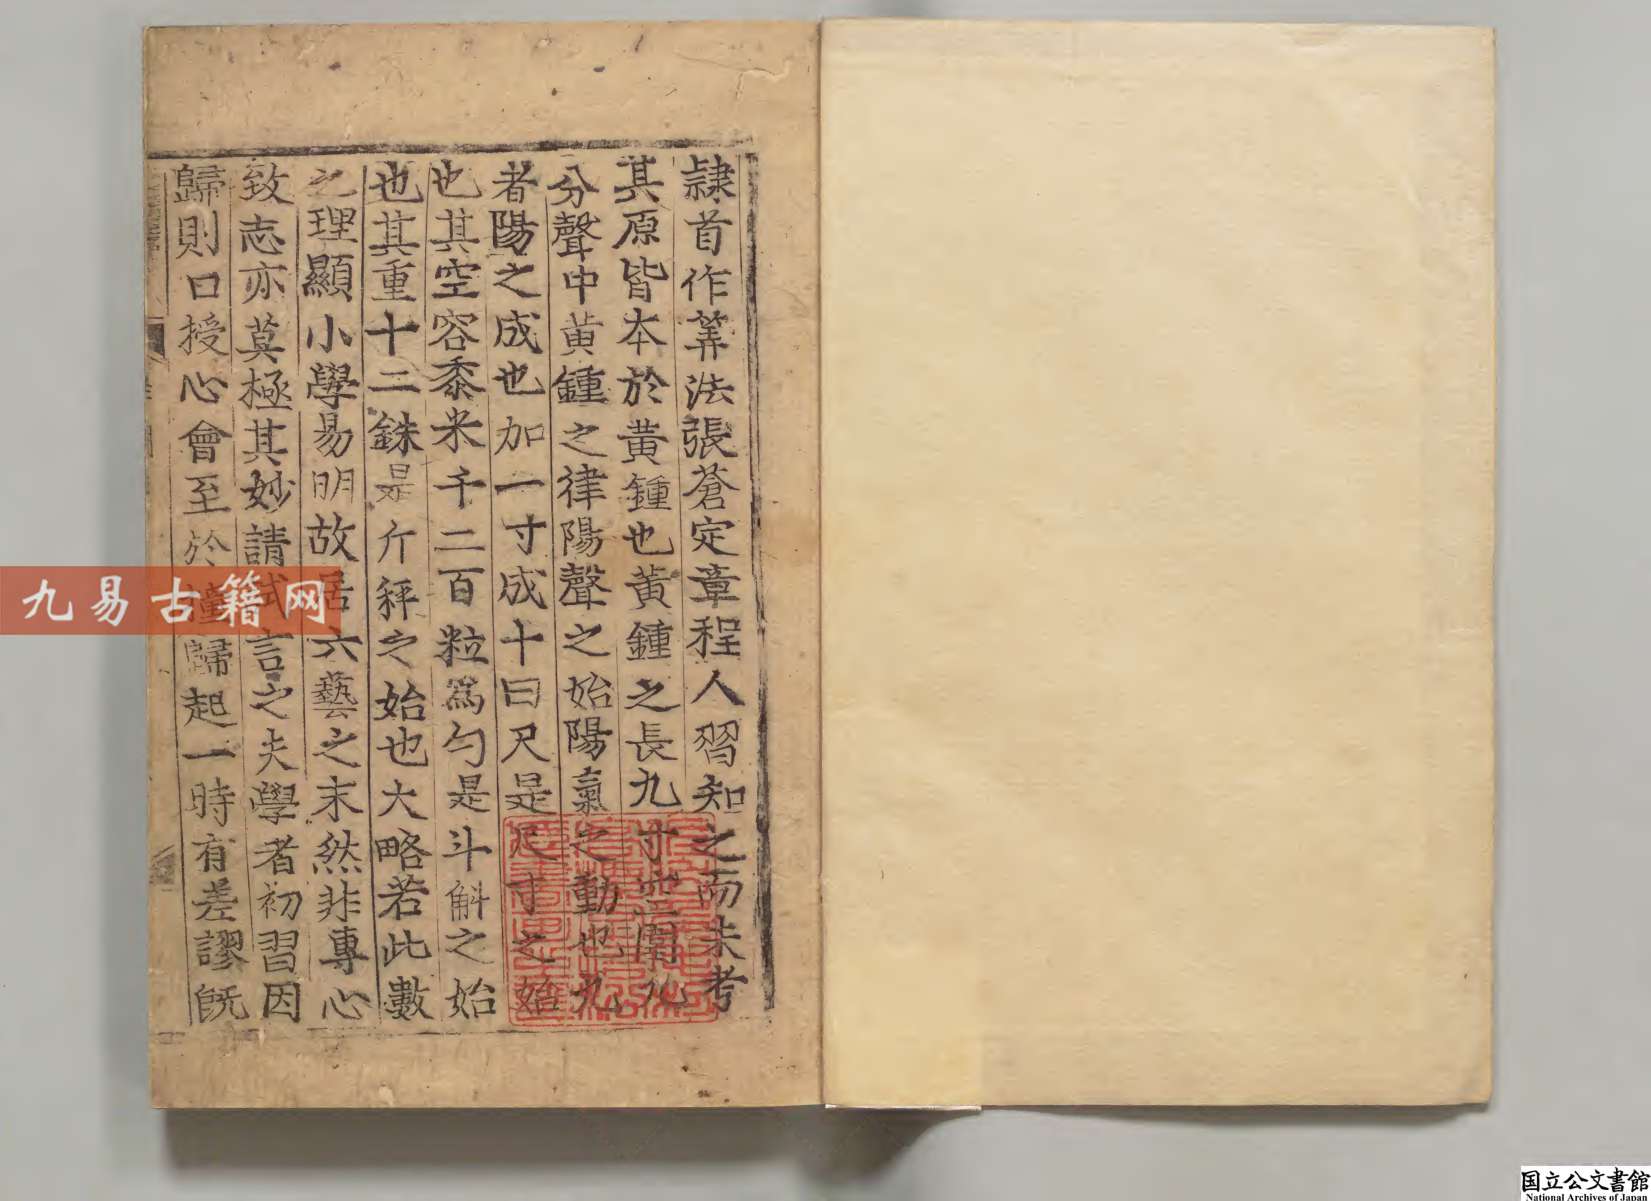 隷首作筭法張蒼定章程人習知之而未考
其原皆本於黄鍾也黄鍾之長九寸空圍九
分聲中黄鍾之律陽聲之始陽氣之動也九
者陽之成也加一寸成十曰尺是尺寸之始
也其空容黍米千二百粒為勺是斗斛之始
也其重十二銖是斤秤之始也大略若此數
之理顯小學易明故居六藝之末然非專心
致志亦莫極其妙請試言之夫學者初習因
歸則口授心會至於撞歸起一時有差謬旣
九易古籍网
国立公文書館
National Archives of Japan